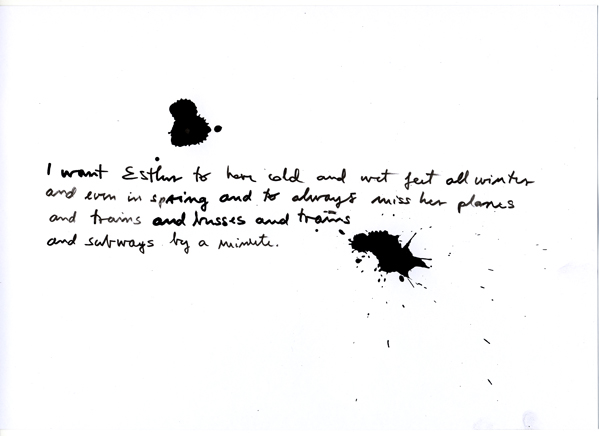 I want Esther to have cold and wet feet all winter
and even in spring and to always miss her planes
and trains and busses and trains
and subways by a minute.